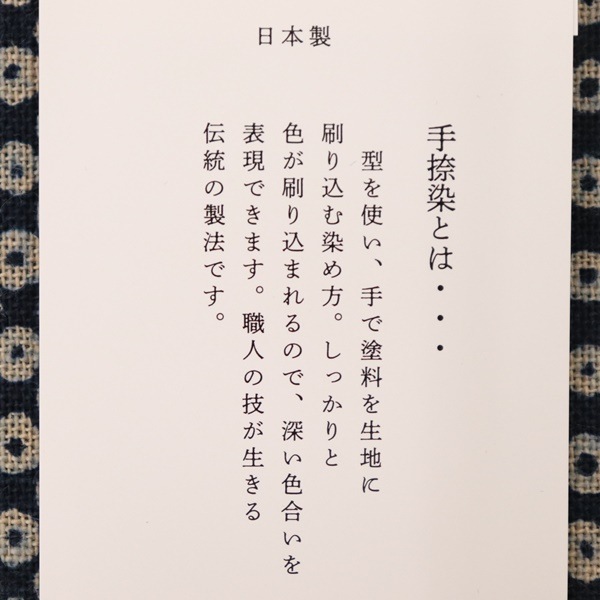 日本製
手捺染とは・・・
型を使い、手で塗料を生地に
刷り込む染め方。しっかりと
色が刷り込まれるので、深い色合いを
表現できます。職人の技が生きる
伝統の製法です。